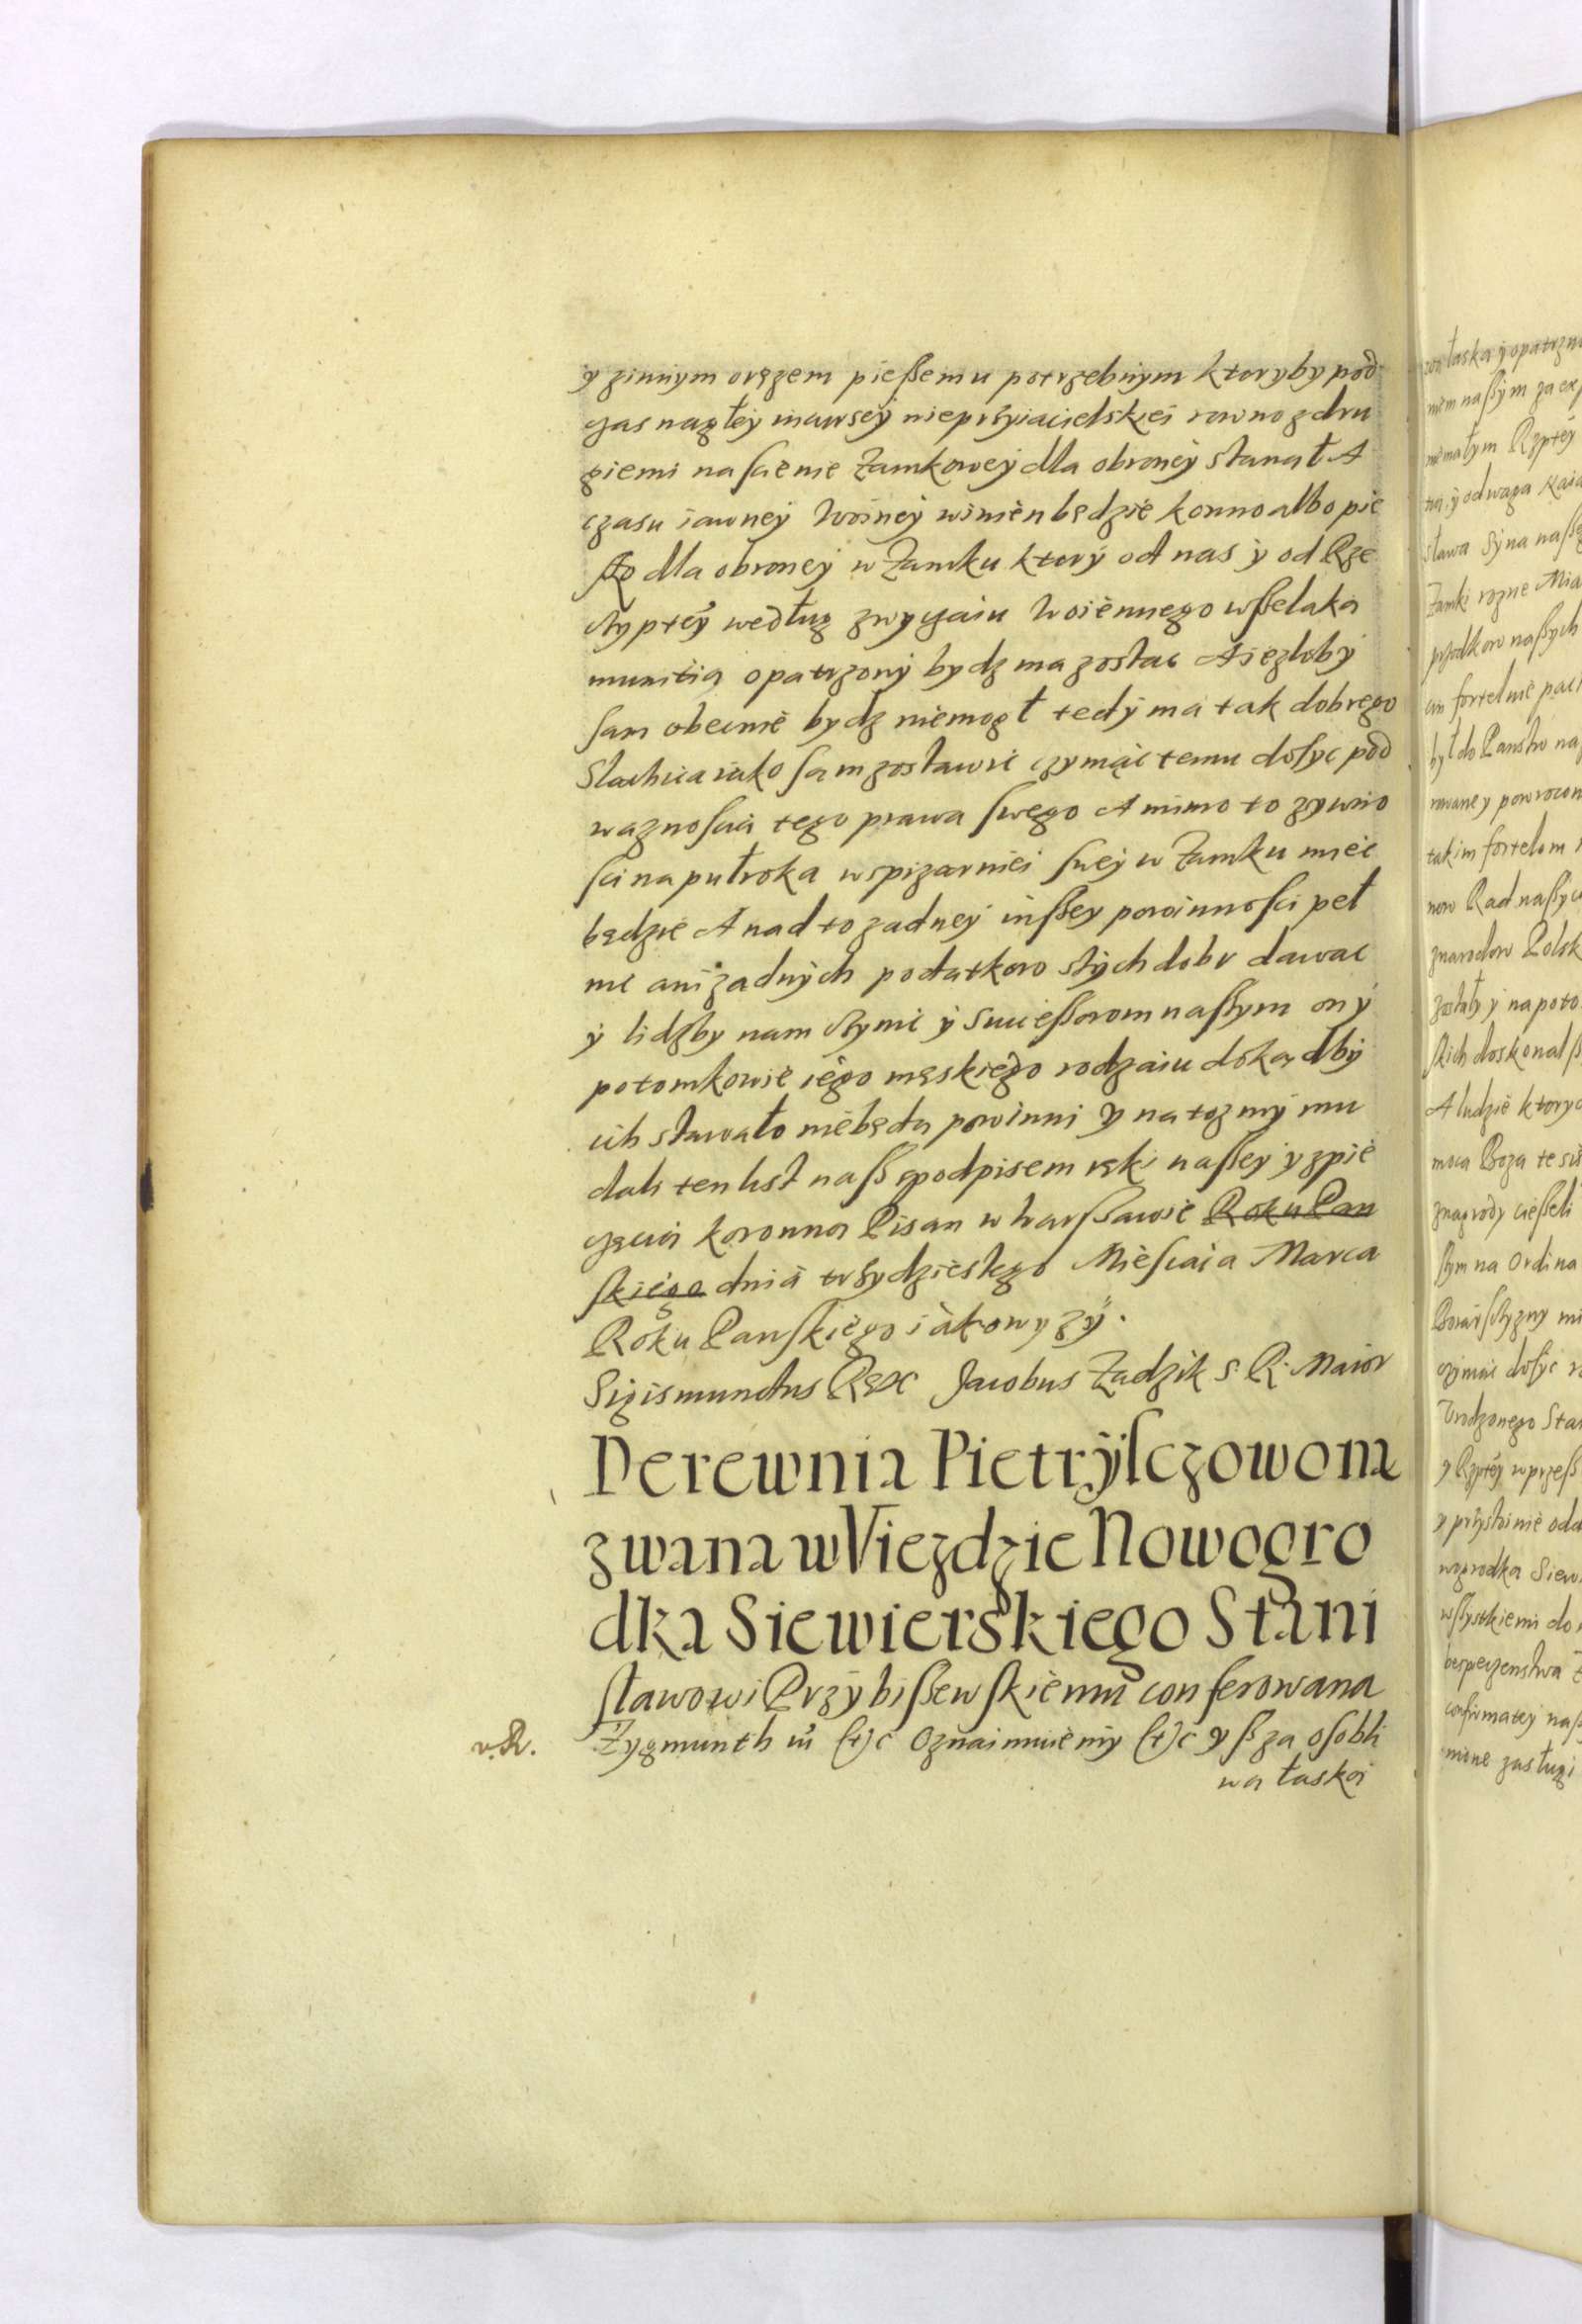 y zinnym orężem pießemu potrzebnym ktoryby pod
czas nagłey incursey nieprzyiacielskiei rowno z dru
giemi na scienie zamkowey dla obroney stanął A
czasu iawney woiney winien będzie konno albo pie
ßo dla obroney w Zamku ktory od nas y od Rze
czyptey według zwyczaiu woiennego wßelaka
munitią opatrzony bydz ma zostac A ieżliby
sam obecnie bydz niemogł tedy ma tak dobrego
Slachcica iako sam zostawic czyniąc temu dosyc pod
waznoscia tego prawa swego A mimo to zywno
sci na pułroka wspizarniei swey w Zamku miec
będzie A nad to zadney inßey powinnosci peł
nic ani zadnych podatkow stych dobr dawac
y lidzby nam czynic y Successorom naßym on y
potomkowie iego męskiego rodzaiu dokądby
ich stawało niebęda powinni y na toz my mu
dali ten list naß spodpisem ręki naßey y zpie
częcia koronna Pisan w Warßawie Roku Pan
skiego dnia trzydziestego Miesiaca Marca
Roku Panskiego iakowyzy.
Sigismundus Rex Jacobus Zadzik S. R. Maior
Derewnia Pietryſczowo na
zwana w Viezdzie Nowogro
dka Siewierskiego Stani
sławowi Przybißewskiemu conferowana
v. R. Zygmunth III (t)c Oznaimuiemy (t)c yß za osobli
wa łaska
wa łaska y opatrzno
niem naßym za ex
niemałym Rzptey
y odwaga
sława Syna naße
Zamki rozne Mia
przodkow naßych
fortelnie
był do Panstw na
rowane y powrocon
takim fortelom
now Rad naßyc
znarodow Polsk
zostały y na poto
skich doskonalß
A ludzie ktoryc
moca Boza te
znagrody cießeli
ßym na Ordina
czyniac dosyc
Vrodzonego Sta
y Rzptey w przeß
y przystoinie oda
wogrodka Siew
wßystkiemi do
bespieczenstwa
confirmatey naß
nione zasługi